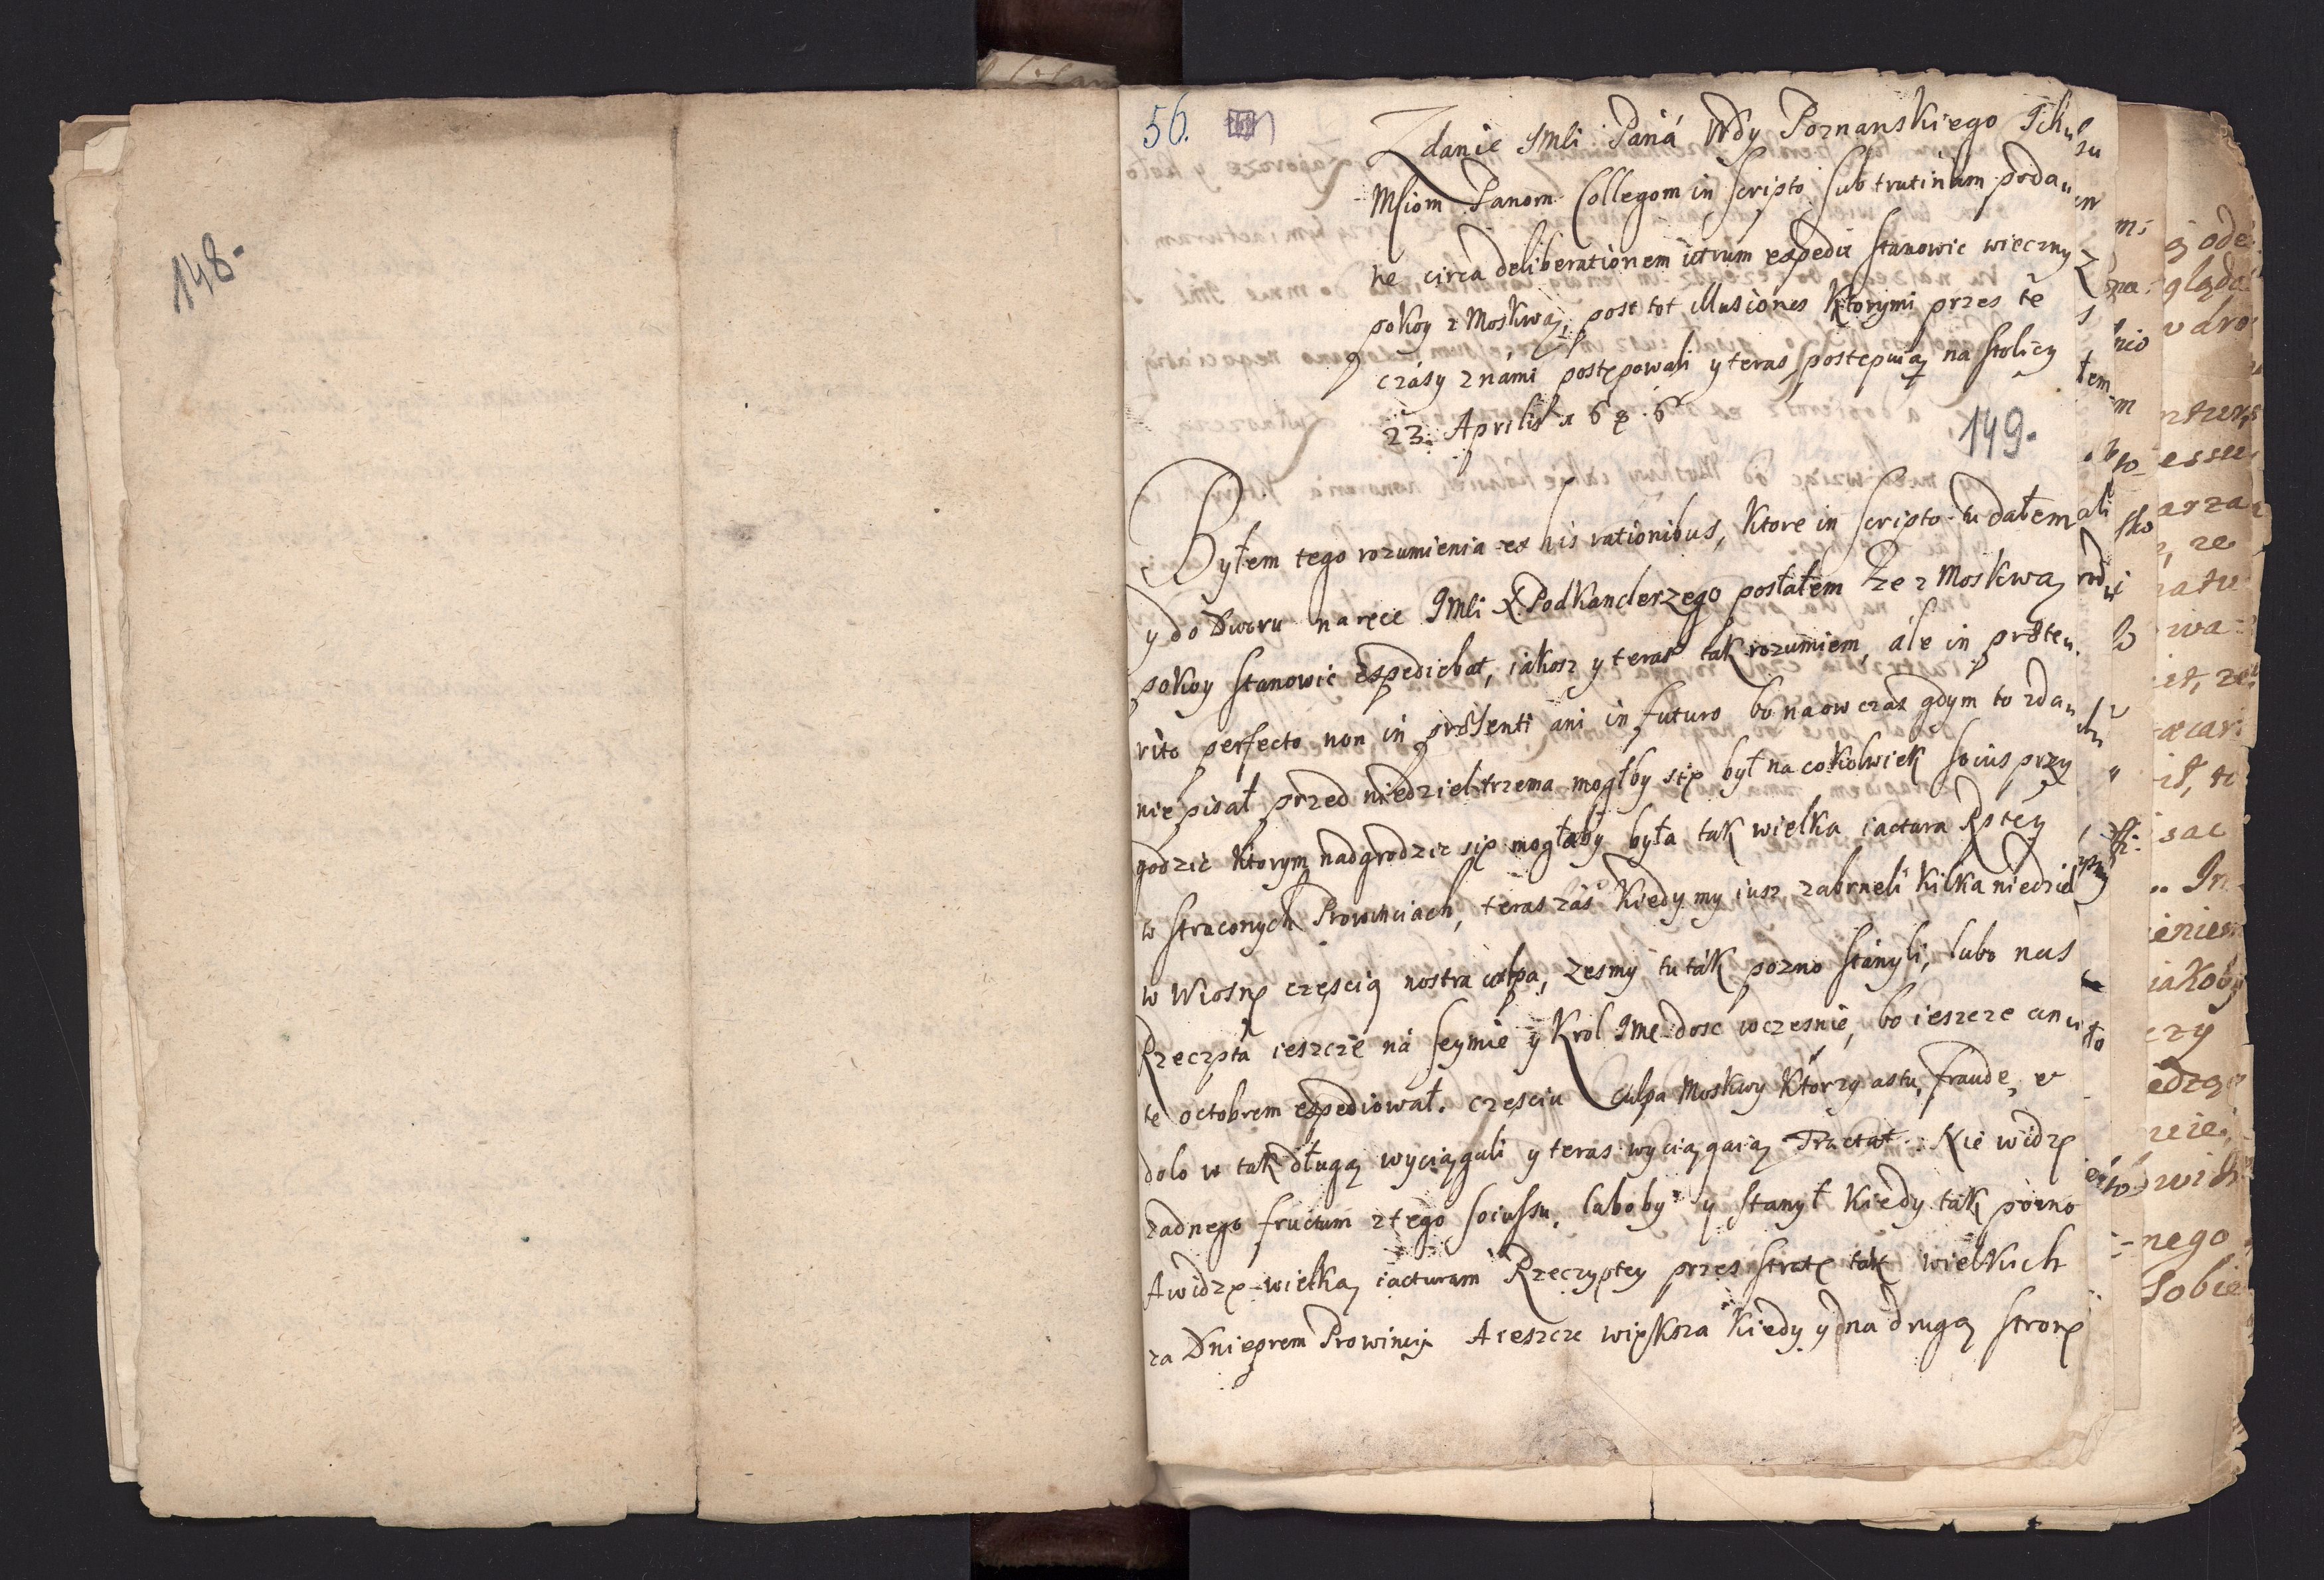 148.
56.
Zdanie JMći Paná Wdy Poznanskiego Ich
Mściom Panom Collegom in scripto sub trutinam poda
ne circa deliberationem utrum expedit stanowic wieczny
pokoy z Moskwą, post tot illusiones Ktorymi przes te
czásy z námi postępowali y teras postępuią na stolicy
23. Aprilis 1686
149.
Byłem tego rozumienia ex his rationibus, Ktore in scripto tu dałem
y do Dworu na ręce JMći X Podkanclerzego posłałem ze z Moskwą
pokoy stanowic expediebat, iakosz y teras tak rozumiem, ále in præte
rito perfecto non in præsenti ani in futuro bo na ow czas gdym to zda
nie pisał przed niedziel trzema mogłby się był na cokolwiek socius przy
godzic Ktorym nadgrodzic się mogłaby była tak wielka iactura Rptey
w straconych Prowinciach, teras zás Kiedy my iusz zabrneli Kilka niedziel
w Wiosnę częscią nostra culpa, zesmy tu ták pozno stánęli, lubo nas
Rzeczpta ieszcze ná seymie y Krol JMc dosc wczesnie, bo ieszcze an
te octobrem expediował. częsciu culpa Moskwy Ktorzy astu, fraude, et
dolo w tak długą wyciągali y teras wyciągaią Tractat. Nie widzę
zadnego fructum z tego sociussu, luboby y stanył Kiedy ták pozno
A widzę wielką iacturam Rzeczyptey przes stratę tak wielkich
za Dnieprem Prowincy A ieszcze większa Kiedy y na drugą stronę